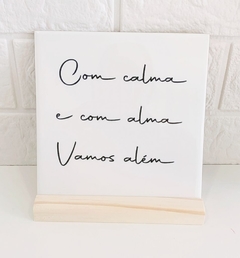 Com calma
e com alma
Vamos além